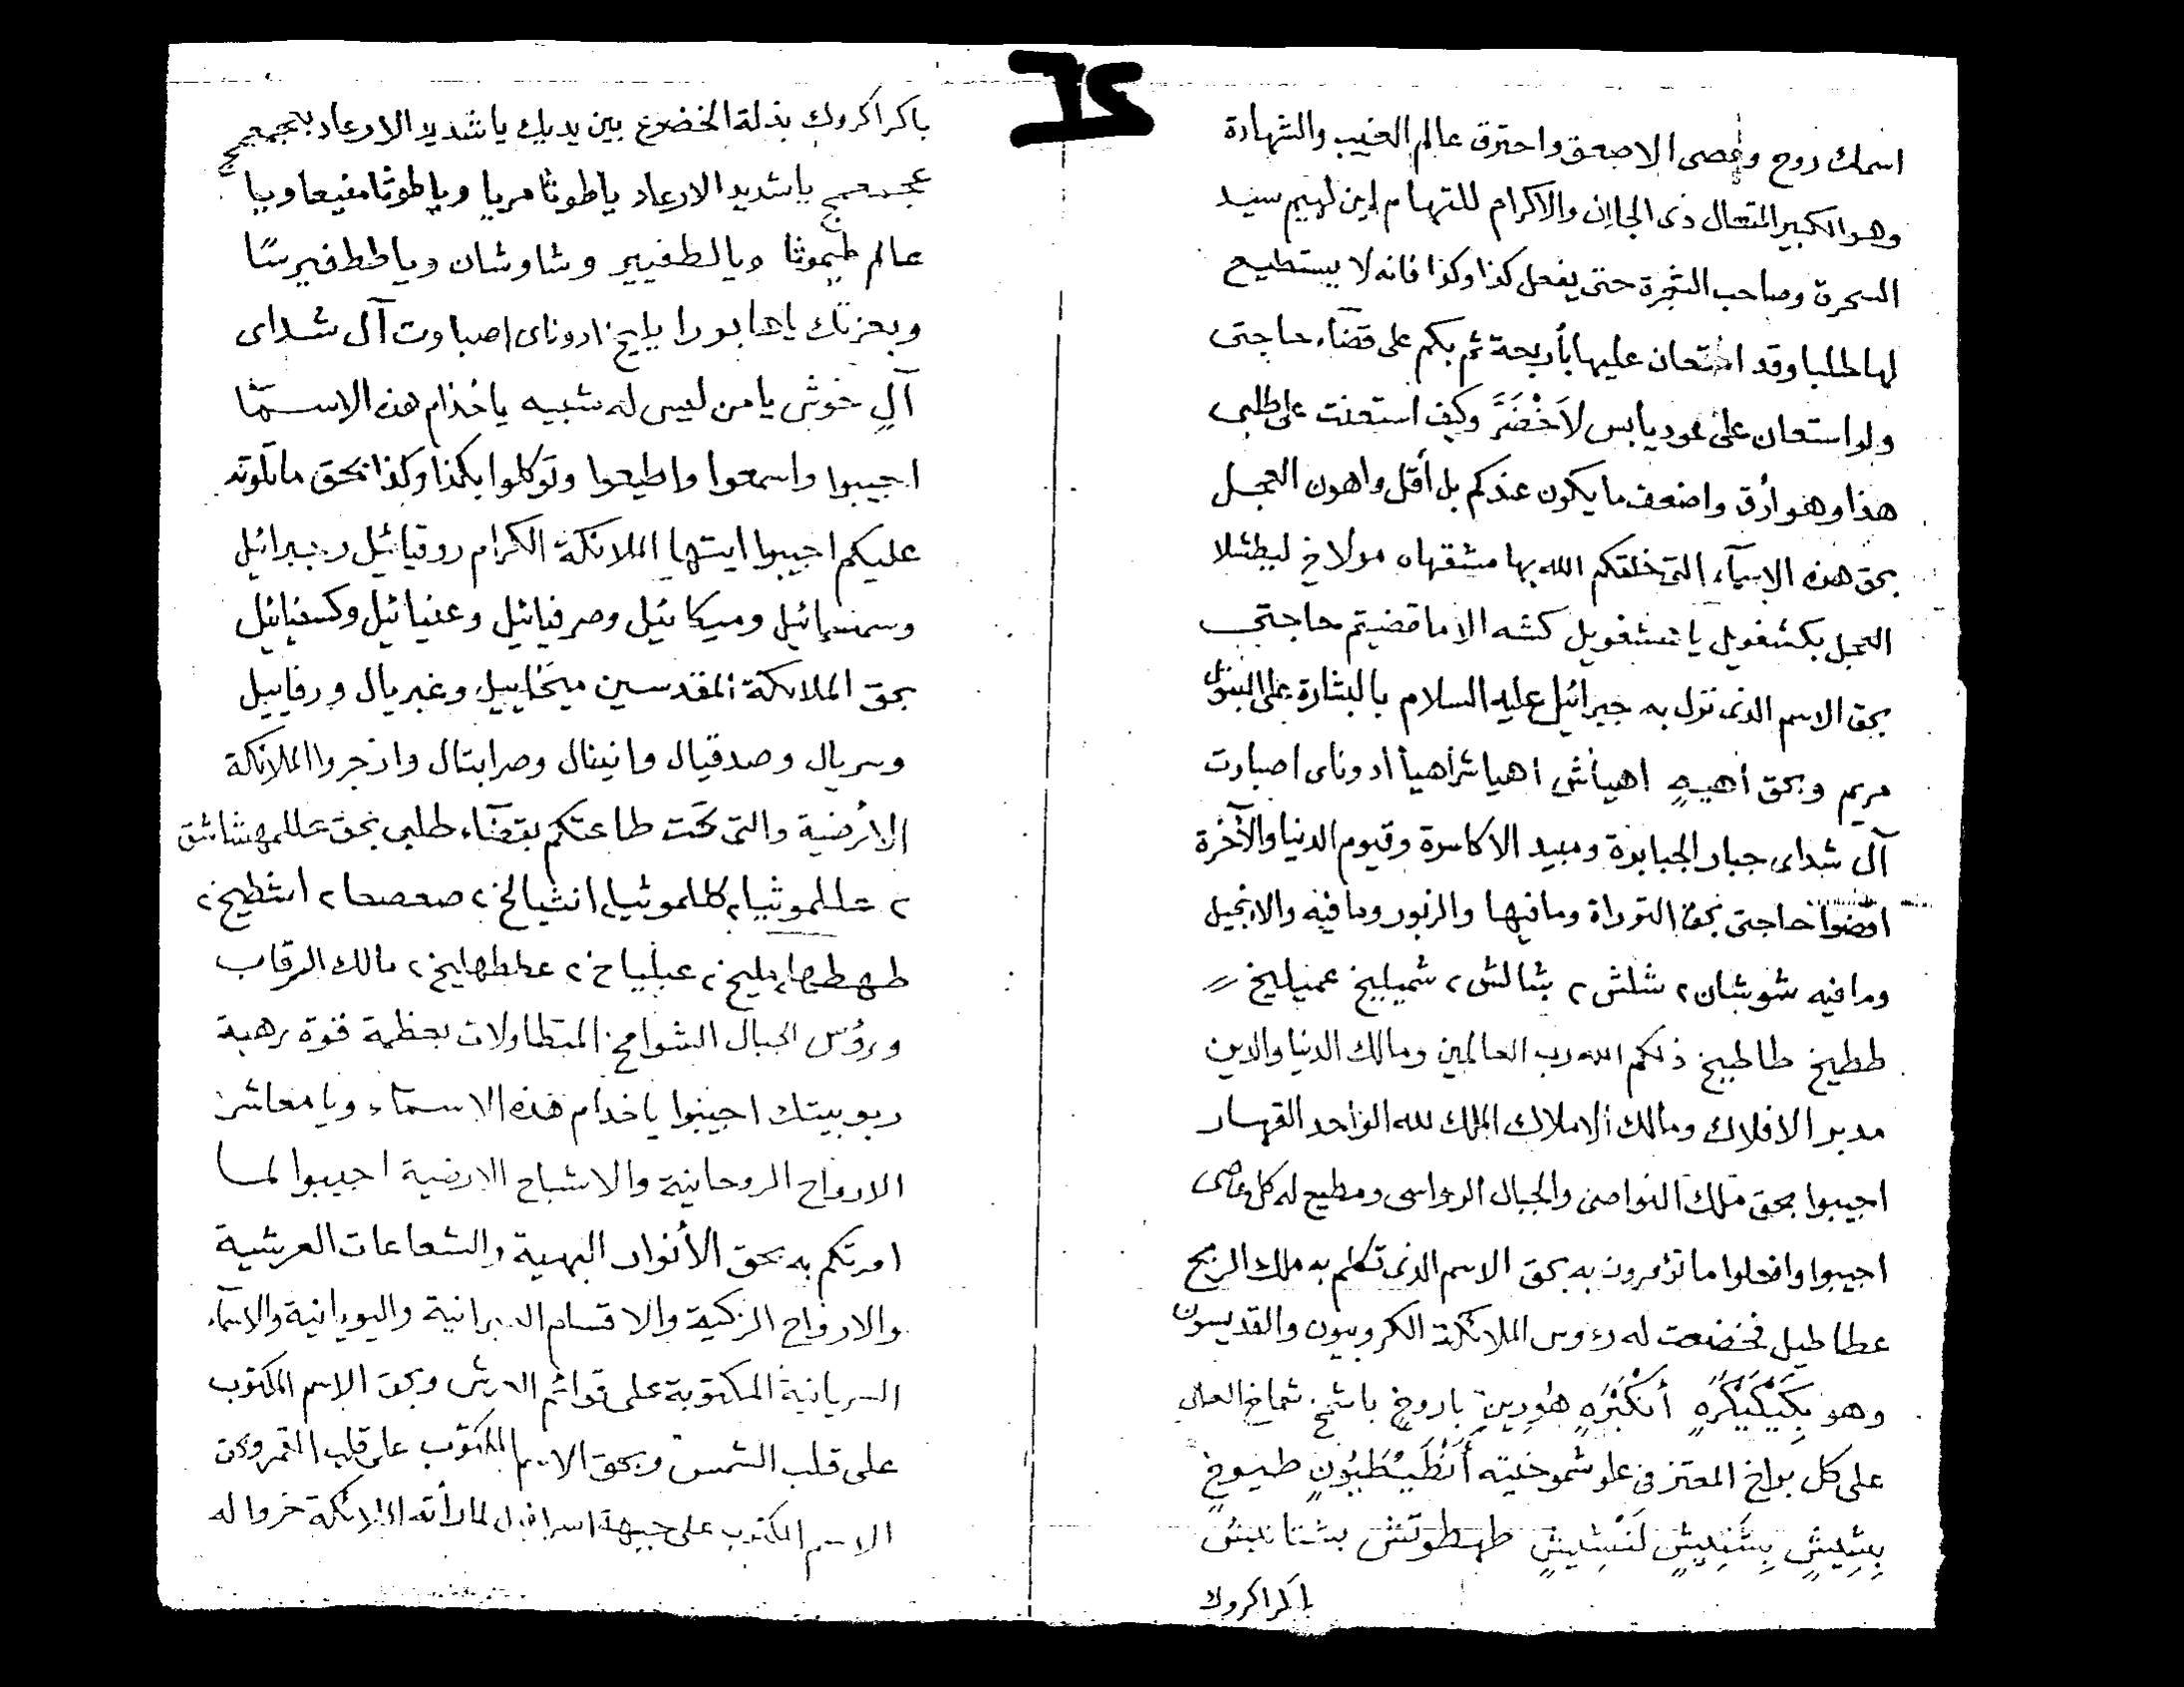 اسمك روح وعصى الا صعق واحترق عالم الغيب والشهادة
وهو الكبير المتعال ذى الجلال والاكرام سيد
السحرة وصاحب الشجرة حتى يفعل كذا وكذا فانه لا يستطيع
لها طلبا وقد استعان عليها بأربعة ثم بكم على قضاء حاجتى
ولو استعان على عود يابس لاَخْضَرَّ وكيف استعنت على طلبى
هذا وهو أرق واضعف ما يكون عندكم بل أقل واهون العجل
بحق هذه الاسمآء التى خلقكم الله بها
العجل بكشفويل يا كشفويل كشه الا ما قضيتم حاجتى
بحق الاسم الذى نزل به جبرائيل عليه السلام بالبشارة على البتول
مريم وبحق أهيه اهياش اهيا شراهيا ادوناى اصباوت
آل شداى جبار الجبابرة ومبيد الاكاسرة وقيوم الدنيا والآخرة
اقضوا حاجتى بحق التوراة وما فيها والزبور وما فيه والانجيل
وما فيه شوشان ٢ شلش ٢ بشالش ٢ شميليخ عميليخ
ططيخ طاطيخ ذلكم الله رب العالمين ومالك الدنيا والدين
مدبر الافلاك ومالك الاملاك الملك لله الواحد القهار
اجيبوا بحق ملك النواصى والجبال الرواسى ومطيع له كل عاصى
اجيبوا وافعلوا ما تؤمرون به بحق الاسم الذى تكلم به ملك الريح
عطاطيل فخضعت له رءوس الملائكة الكروبيون والقديسون
وهو بِكَيْكَيْكَرَهٍ أَنْكَبَرَهٍ هُورِينٍ باروخ باشمخ شماخ العالى
على كل براخ المعتز فى علو شموخيته أَنْطَيْطَبُونٍ طيوخ
بِشِيشٍ بِشَنِيشٍ لَنْشِيشٍ طهطوش
باكراكروك
باكراكروك بذلة الخضوع بين يديك يا شديد الارعاد بعجمعج
عجمعج يا شديد الارعاد ياطوثا مريا وياطوثا منيعا ويا
عالم طيموثا ويالطفيير وشاوشان وياططفيرشا
وبعزتك ياهابورا يليخ ادوناى اصباوت آل شداى
آلٍ خوش يا من ليس له شبيه يا خدام هذه الاسما
اجيبوا واسمعوا واطيعوا وتوكلوا بكذا وكذا بحق ما تلوته
عليكم اجيبوا ايتها الملائكة الكرام روقيائيل وجبرائيل
وسمسمائيل وميكائيل وصرفيائيل وعنيائيل وكسفيائيل
بحق الملائكة المقدسين ميخاييل وغبريال ورفاييل
وسريال وصدقيال وانينال وصرابتال وازجروا الملائكة
الأرضية والتى تحت طاعتكم بقضآء طلبى بحق
٢ عللموثيا ٢ كللموثيا ٢ انشيالخ ٢ صعصعا ٢ اشطيخ ٢
طهطيها مليخ ٢ عبلياخ ٢ عططهليخ ٢ مالك الرقاب
ورؤس الجبال الشوامخ المتطاولات بعظمة قوة رهبة
ربوبيتك اجيبوا يا خدام هذه الاسمآء ويا معاشر
الارواح الروحانية والاشباح الارضية اجيبوا لما
امرتكم به بحق الأنوار البهية والشعاعات العرشية
والارواح الزكية والاقسام العبرانية واليونانية والاسمآء
السريانية المكتوبة على قوائم العرش وبحق الاسم المكتوب
على قلب الشمس وبحق الاسم المكتوب على قلب القمر وبحق
الاسم المكتوب على جبهة اسرافيل لما رأته الملائكة خروا له